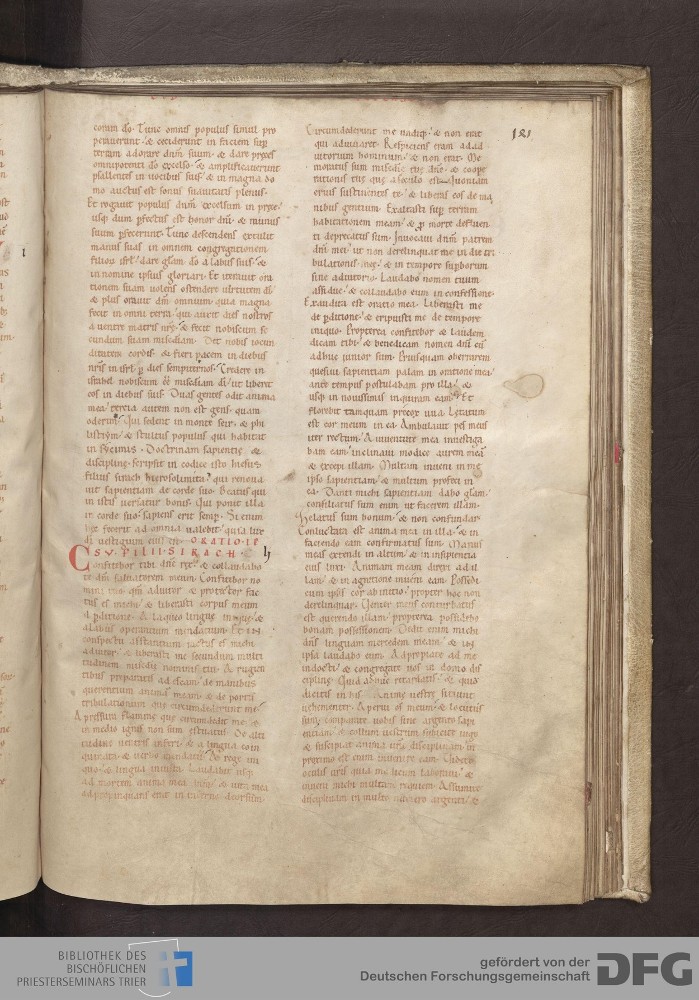 coram deo. Tunc omnis populus simul pro
peraverunt. & ceciderunt in faciem sup
terram adorare dnm suum. & dare preces
omnipotenti do excelso. & amplificaverunt
psallentes in vocibus suis. & in magna do
mo auctus est sonus suavitatis plenus.
Et rogavit populus dnm excelsum in prece.
usq dum pfectus est honor dni. & munus
suum pfecerunt. Tunc descendens extulit
manus suas in omnem congregationem
filiorum isrl. dare glam do a labiis suis. &
in nomine ipsius gloriari. Et iteravit ora
tionem suam volens ostendere virtutem di.
& plus oravit dnm omnium. quia magna
fecit in omni terra. qui auxit dies nostros
a ventre matris nre. & fecit nobiscum se
cundum suam misediam. Det nobis iocun
ditatem cordis. & fieri pacem in diebus
nris in isrl p dies sempiternos. Credere in
israhel nobiscum ee misediam di. ut liberet
eos in diebus suis. Duas gentes odit anima
mea. tercia autem non est gens. quam
oderim. Qui sedent in monte seir. & phi
listiim. & stultus populus qui habitat
in sycimis. Doctrinam sapientie &
discipline scripsit in codice isto hiesus
filius sirach hierosolimita. qui renova
vit sapientiam de corde suo. Beatus qui
in istis versatur bonis. Qui ponit illa
in corde suo sapiens erit semp. Si enim
hec fecerit ad omnia valebit. quia lux
di vestigium eius est. ORATIO IE
SV. FILII. SIRACH.
Confitebor tibi dne rex. & collaudabo
te dm salvatorem meum. Confitebor no
mini tuo. qm adiutor & protector fac
tus es michi. & liberasti corpus meum
a pditione. A laqueo lingue inique. &
a labiis operantium mendacium. Et in
conspectu astantium factus es michi
adiutor. & liberasti me secundum multi
tudinem misedie nominis tui. A rugien
tibus preparatis ad escam. de manibus
querentium animam meam. & de portis
tribulationum que circumdederunt me.
A pressura flamme que circumdedit me. &
in medio ignis non sum estuatus. De alti
tudine ventris inferi. & a lingua coin
quinata. & verbo mendacii. A rege ini
quo. & lingua iniusta. Laudabit usq
ad mortem anima mea dnm. & vita mea
adpropinquans erat in inferno deorsum.
Circumdederunt me undiq. & non erat
qui adiuvaret. Respiciens eram ad ad
iutorium hominum. & non erat. Me
moratus sum misedie tue dne. & coope
rationis tue que a seculo est. Quoniam
eruis sustinentes te. & liberas eos de ma
nibus gentium. Exaltasti sup terram
habitationem meam. & p morte defluen
ti deprecatus sum. Invocavi dnm patrem
dni mei. ut non derelinquat me in die tri
bulationis mee. & in tempore supborum
sine adiutorio. Laudabo nomen tuum
assidue. & collaudabo eum in confessione.
Exaudita est oratio mea. Liberasti me
de pditione. & eripuisti me de tempore
iniquo. Propterea confitebor & laudem
dicam tibi. & benedicam nomen dni cu
adhuc iunior sum. Priusquam oberrarem
quesivi sapientiam palam in oratione mea.
ante tempus postulabam pro illa. &
usq in novissimis inquiram eam. Et
florebit tamquam precox uva. Letatum
est cor meum in ea. Ambulavit pes meus
iter rectum. A iuventute mea investiga
bam eam. inclinavi modice aurem mea
& excepi illam. Multam inveni in me
ipso sapientiam. & multum profeci in
ea. Danti michi sapientiam dabo glam.
consiliatus sum enim ut facerem illam.
Zelatus sum bonum. & non confundar.
Conluctata est anima mea in illa. & in
faciendo eam confirmatus sum. Manus
meas extendi in altum. & in insipientia
eius luxi. Animam meam direxi ad il
lam. & in agnitione inveni eam. Possedi
cum ipsis cor ab initio. propter hoc non
derelinquar. Venter meus conturbatus
est querendo illam. propterea possidebo
bonam possessionem. Dedit enim michi
dns linguam mercedem meam. & in
ipsa laudabo eum. Adpropiate ad me
indocti. & congregate vos in domo dis
cipline. Quid adhuc retardatis. & quid
dicitis in his. Anime vestre sitiunt
vehementer. Aperui os meum. & locutus
sum. Comparate vobis sine argento sapi
entiam. & collum vestrum subicite iugo.
& suscipiat anima vra disciplinam. in
proximo est enim invenire eam. Videte
oculis vris quia modicum laboravi. &
inveni michi multam requiem. Assumite
disciplinam in multo numero argenti. &
181
BIBLIOTHEK DES
BISCHÖFLICHEN
PRIESTERSEMINARS TRIER
gefördert von der
Deutschen Forschungsgemeinschaft
DFG